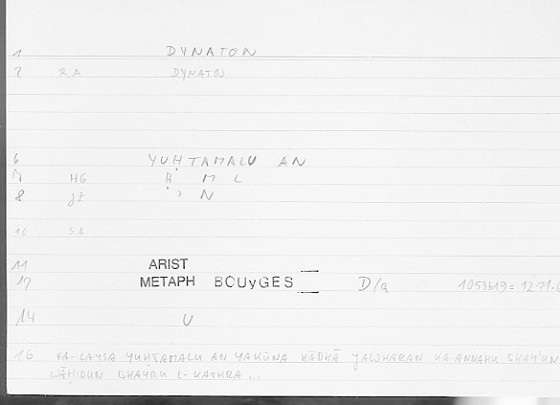 1 DYNATON
2 RA DYNATON
6 YUḤTAMALU AN
7 HG Ḥ M L
8 gt ʾ N
10 SA
11 ARIST
12 METAPH BOUyGES D/a
14 U
16 LAYSA YUḤTAMALU AN YAKŪNA HĀDHĀ JAWHARAN KA-ANNAHU SHAYʾUN
WĀḤIDUN GHAYRU L-KATHRA ...